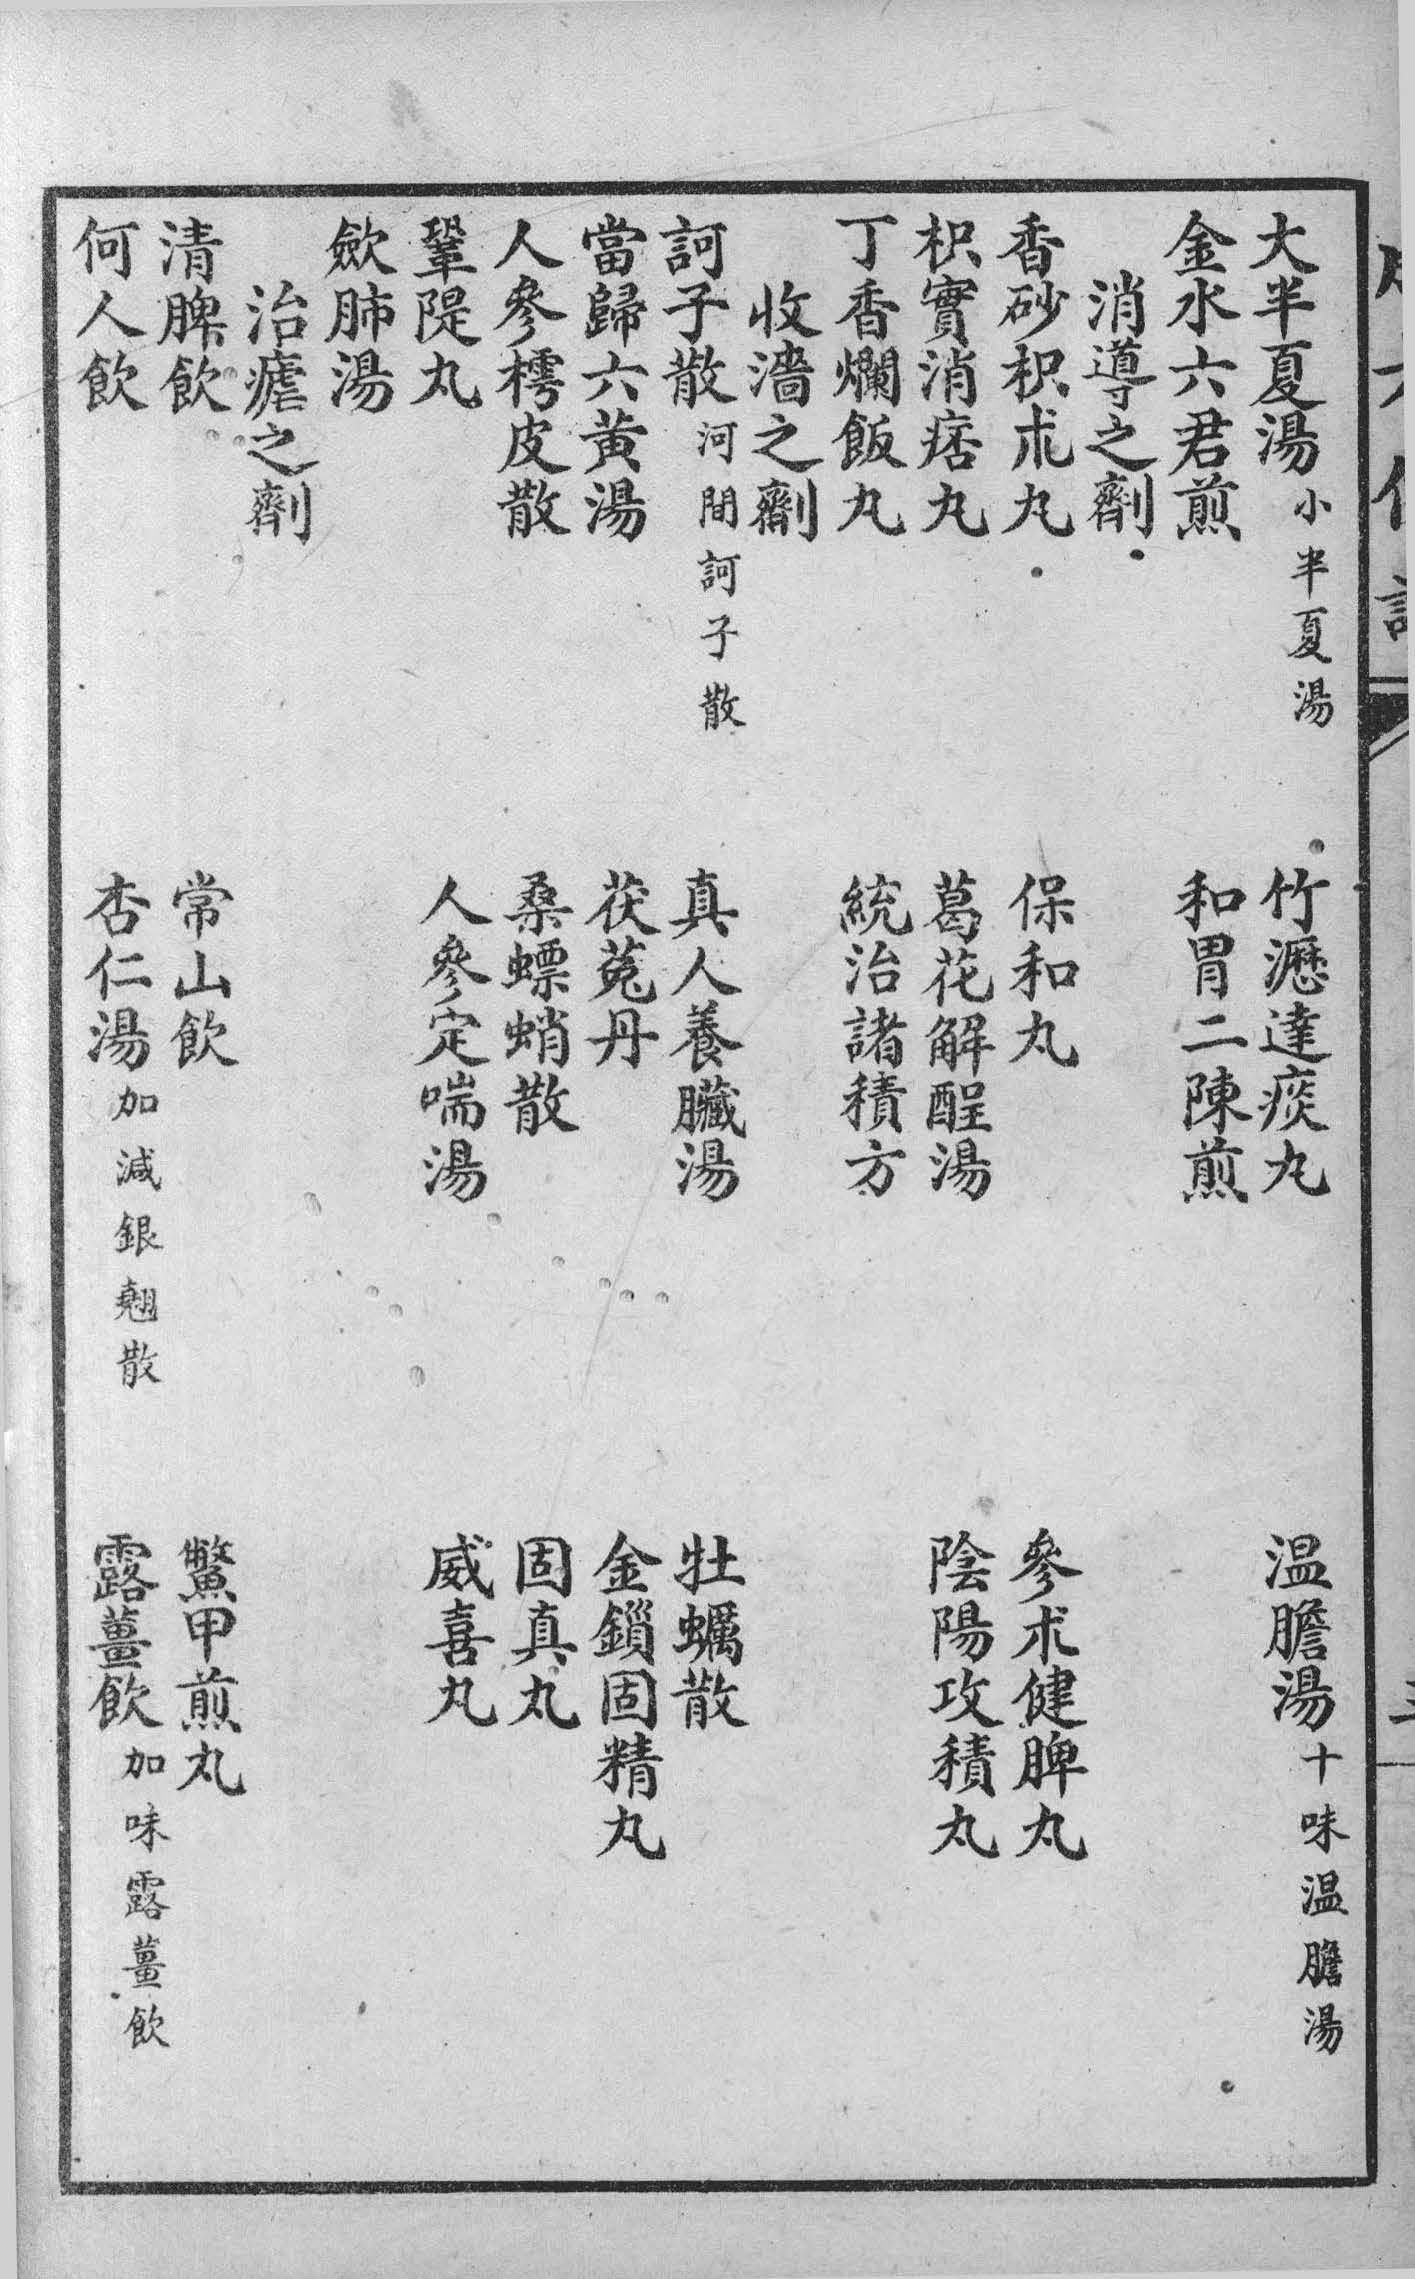 大半夏湯 小半夏湯　竹瀝達痰丸　温膽湯 十味温膽湯
金水六君煎　和胃二陳煎
消導之劑
香砂枳朮丸　保和丸　參朮健脾丸
枳實消痞丸　葛花解酲湯　陰陽攻積丸
丁香爛飯丸　統治諸積方
收濇之劑
訶子散 河間訶子散　真人養臟湯　牡蠣散
當歸六黃湯　茯菟丹　金鎖固精丸
人參樗皮散　桑螵蛸散　固真丸
鞏隄丸　人參定喘湯　威喜丸
歛肺湯
治瘧之劑
清脾飲　常山飲　鱉甲煎丸
何人飲　杏仁湯 加減銀翹散　露薑飲 加味露薑飲